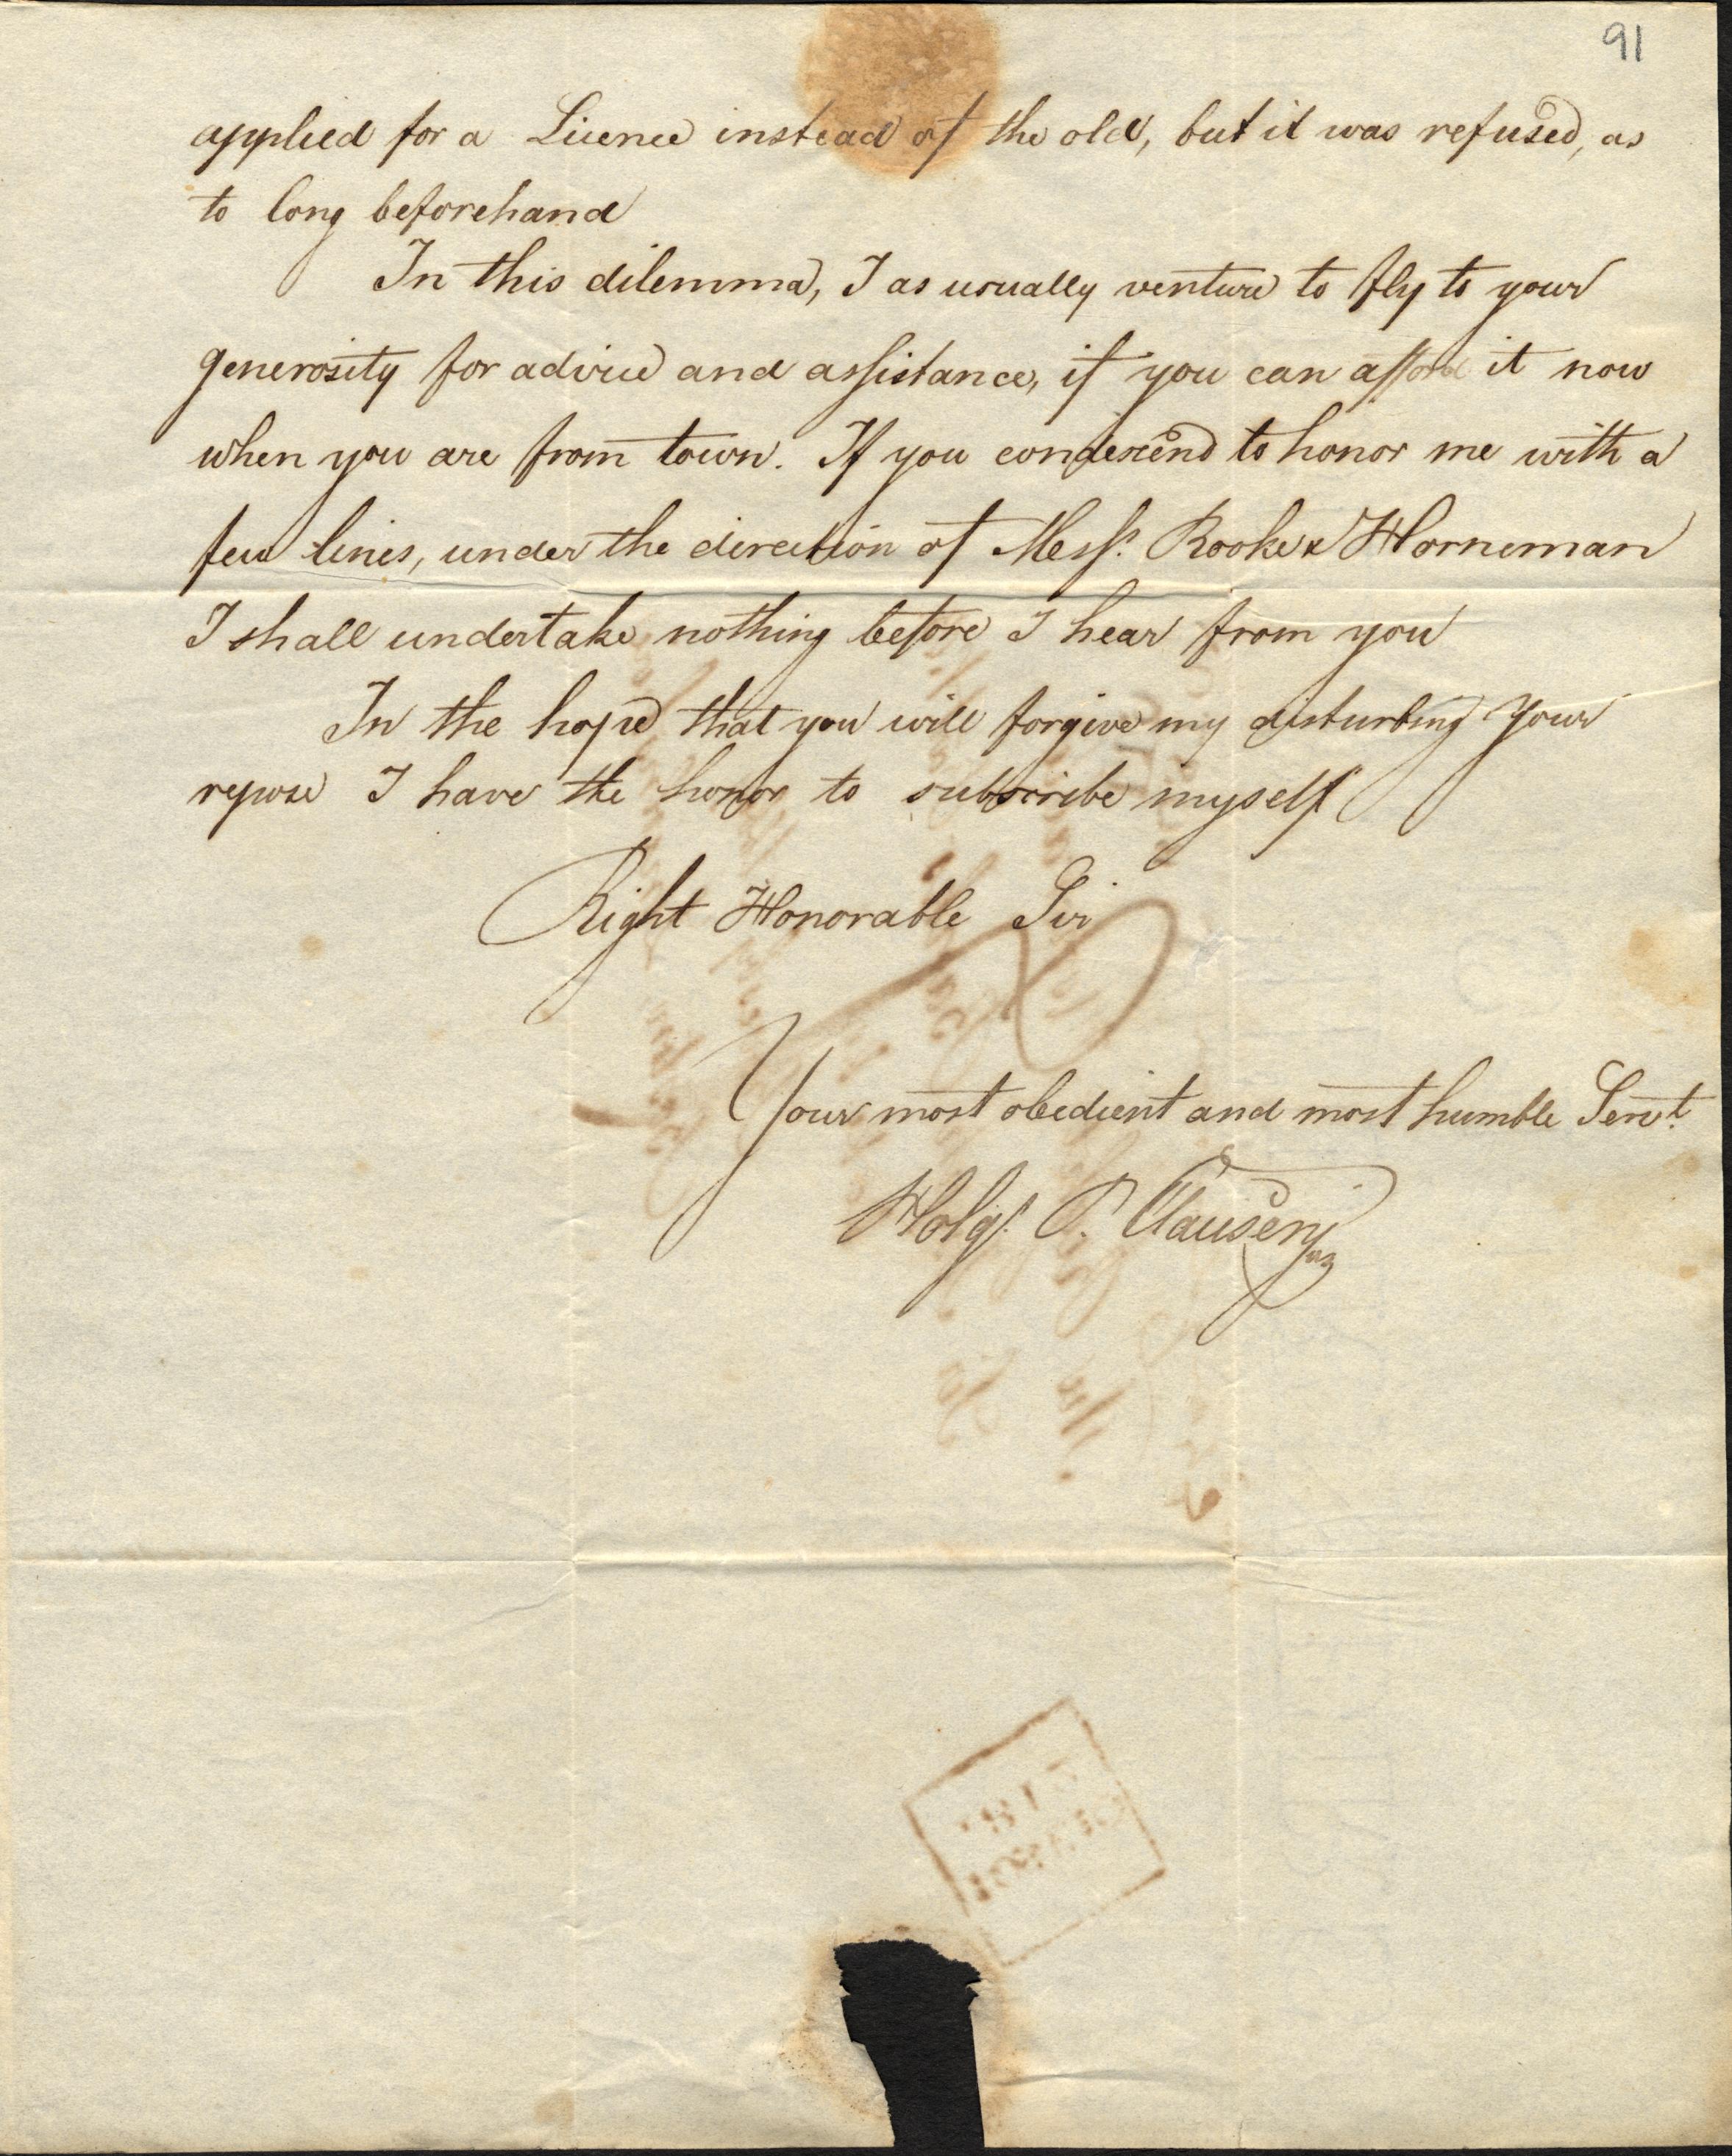 91
applied for a Licence instead of the old, but it was refused, as
to long beforehand
In this dilemma, I as usually venture to fly to your
generosity for advice and assistance, if you can afford it now
when you are from town. If you condescend to honor me with a
few lines, under the direction of Mess.s Rooke & Horneman
I shall undertake nothing before I hear from you
In the hope that you will forgive my disturbing Your
repose I have the honor to subscribe myself
Right Honorable Sir
Your most obedient and most humble Servt.
Holgr. P. Clausen